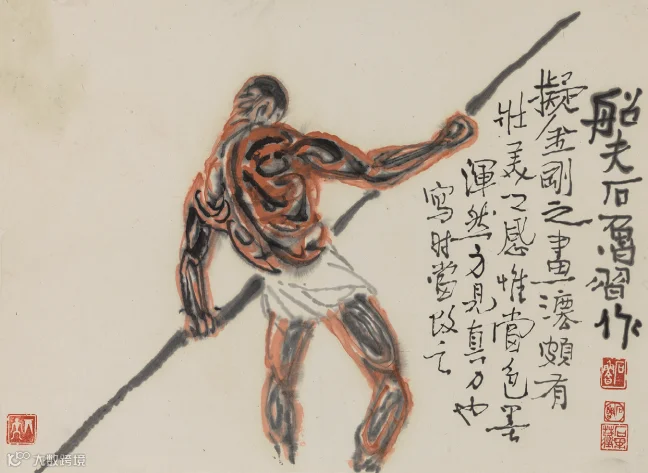 船夫石魯習作
擬金剛之畫頗有
壯美之感惟當色墨
渾然方見真力也
寫时當改之
大数跨境